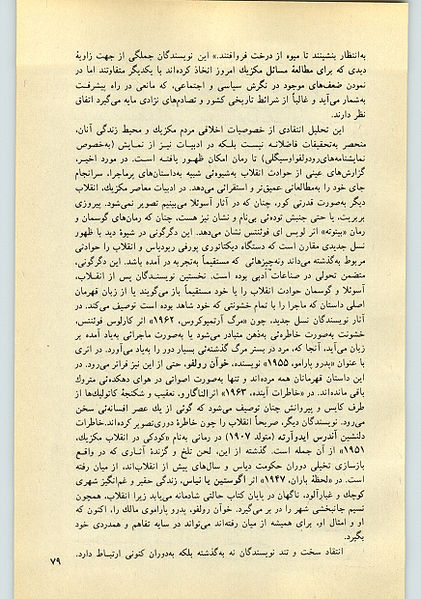 به‌انتظار بنشینند تا میوه از درخت فروافتد.» این نویسندگان جملگی از جهت زاویهٔ
دیدی که برای مطالعهٔ مسائل مکزیک امروز اتخاذ کرده‌اند با یکدیگر متفاوتند اما در
نمودن ضعف‌های موجود در نگرش سیاسی و اجتماعی، که مانعی در راه پیشرفت
به‌شمار می‌آید و غالباً از شرائط تاریخی کشور و تصادم‌های نژادی مایه می‌گیرد اتفاق
نظر دارند.
این تحلیل انتقادی از خصوصیات اخلاقی مردم مکزیک و محیط زندگی آنان،
منحصر به‌تحقیقات فاضلانه نیست بلکه در ادبیات نیز از نمایش (به‌خصوص
نمایشنامه‌های رودولفواوسیگلی) تا رمان امکان ظهور یافته است. در مورد اخیر،
گزارش‌های عینی از حوادث انقلاب به‌شیوه‌ئی شبیه به‌داستان‌های پرماجرا، سرانجام
جای خود را به‌مطالعاتی عمیق‌تر و استقرائی می‌دهد. در ادبیات معاصر مکزیک، انقلاب
دیگر به‌صورت قدرتی کور، چنان که در آثار آسوئلا می‌بینیم تصویر نمی‌شود. پیروزی
بربریت، یا حتی جنبش توده‌ئی بی‌نام و نشان نیز هست، چنان که رمان‌های گوسمان و
رمان «بیتوته» اثر لویس ای فوئنتس نشان می‌دهد. این دگرگونی در شیوهٔ دید با ظهور
نسل جدیدی مقارن است که دستگاه دیکتاتوری پورفی ریودیاس و انقلاب را حوادثی
مربوط به‌گذشته می‌داند رنه‌چیزهائی که مستقیماً به‌تجربه در آمده باشد. این دگرگونی،
متضمن تحولی در صناعات ادبی بوده است. نخستین نویسندگان پس از انقلاب،
آسوئلا و گوسمان حوادث انقلاب را یا خود مستقیماً باز می‌گویند یا از زبان قهرمان
اصلی داستان که ماجرا را با تمام خشونتی که خود شاهد بوده است توصیف می‌کند. در
آثار نویسندگان نسل جدید، چون «مرگ آرتمیوکروس، ۱۹۶۲» اثر کارلوس فوئنتس،
خشونت به‌صورت خاطره‌ئی به‌ذهن متبادر می‌شود یا به‌صورت ماجرائی به‌یاد آمده بر
زبان می‌آید، آنجا که، مرد در بستر مرگ گذشته‌ئی بسیار دور را به‌یاد می‌آورد. در اثری
با عنوان «پدرو پارامو، ۱۹۵۵» نویسنده، خوآن رولفو، حتی از این نیز فراتر می‌رود. در
این داستان قهرمانان همه مرده‌اند و تنها به‌صورت اصواتی در هوای دهکده‌ئی متروک
باقی مانده‌اند. در «خاطرات آینده، ۱۹۶۳» اثرالناگارو، تعقیب و شکنجهٔ کاتولیک‌ها از
طرف کایس و پیروانش چنان توصیف می‌شود که گوئی از یک عصر افسانه‌ئی سخن
می‌رود. نویسندگان دیگر، صریحاً انقلاب را چون خاطرهٔ دوری‌تصویر کرده‌اند.خاطرات
دلنشین آندرس ایدوآرته (متولد ۱۹۰۷) در رمانی به‌نام «کودکی در انقلاب مکزیک،
۱۹۵۱» از آن جمله است. گذشته از این، لحن تلخ و گزندهٔ آثاری که در واقع
بازسازی تخیلی دوران حکومت دیاس و سال‌های پیش از انقلاب‌اند، از میان رفته
است. در «لحظهٔ باران، ۱۹۴۷» اثر اگوستین یا نیاس، زندگی حقیر و غم‌انگیز شهری
کوچک و غبارآلود، ناگهان در پایان کتاب حالتی شادمانه می‌یابد زیرا انقلاب، همچون
نسیم جانبخشی شهر را در بر می‌گیرد. خوآن رولفو، پدرو پاراموی مالک را، اکنون که
او و امثال او، برای همیشه از میان رفته‌اند می‌تواند در سایه تفاهم و همدردی خود
بگیرد.
انتقاد سخت و تند نویسندگان نه به‌گذشته بلکه به‌دوران کنونی ارتباط دارد.
۷۹